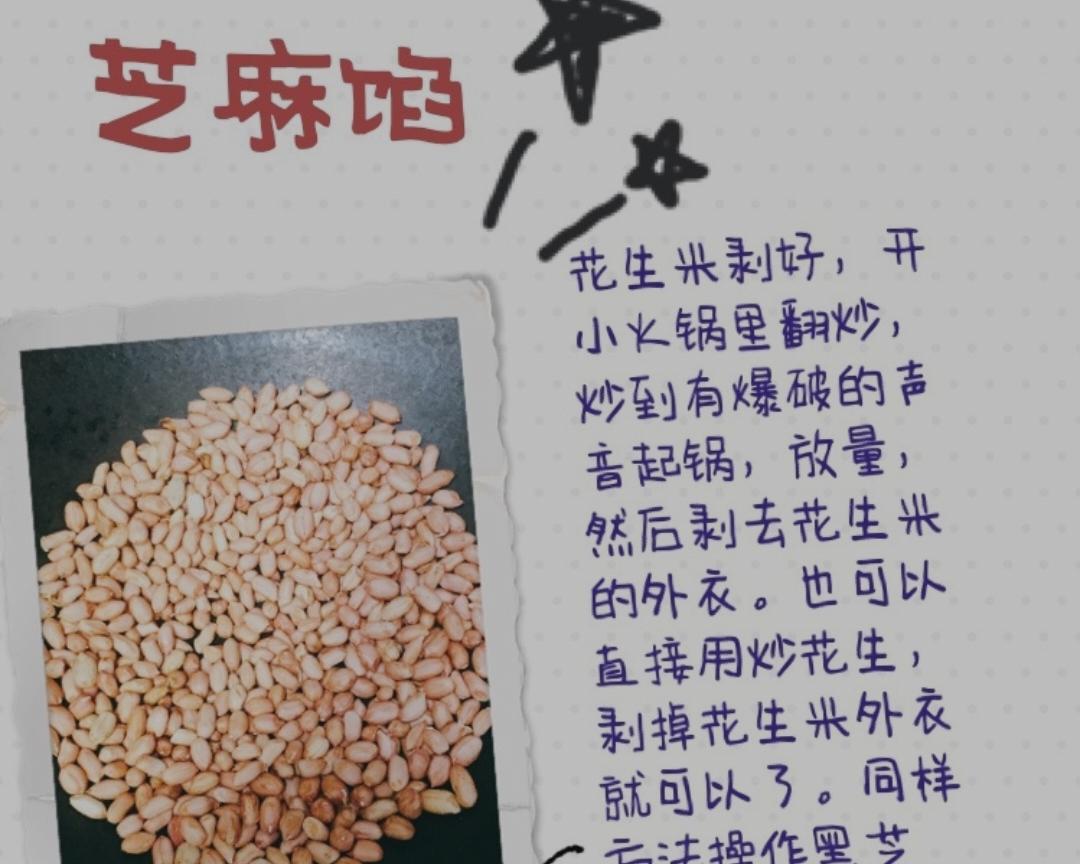 芝麻馅
花生米剥好，开
小火锅里翻炒，
炒到有爆破的声
音起锅，放量，
然后剥去花生米
的外衣。也可以
直接用炒花生，
剥掉花生米外衣
就可以了。同样
方法操作黑芝